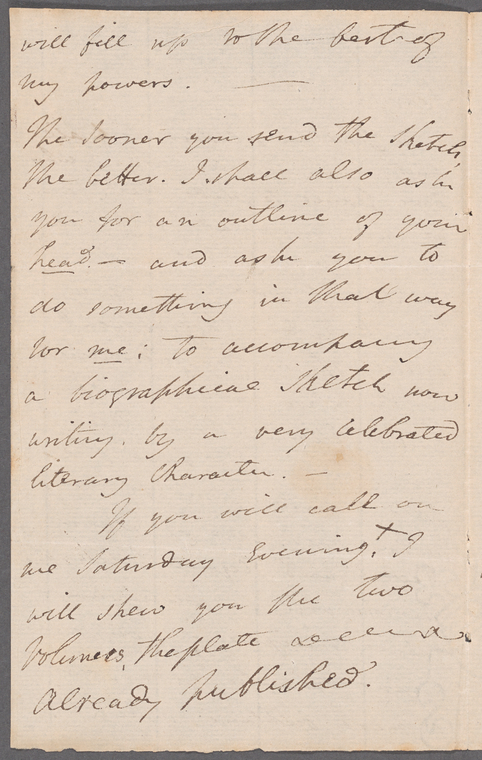 will fill up to the best of
my powers. —
The sooner you send the sketch,
the better. I shall also ask
you for an outline of your
head. — and ask you to
do something in that way
for me; to accompany
a biographical sketch now
writing by a very celebrated
literary Character. —
If you will call on
me Saturday Evening,+ I
will shew you the two
Volumes, the plate
already published.